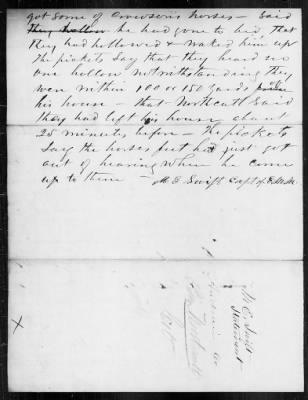 got some of Crowsons horses – Said
they hollow he had gone to bed, that
they had hollowed & waked him up
the pickets say that they heard no
one hollow notwithstanding they
were within 100 or 150 yards of
his house – that Northcutt said
they had left his house about
25 minutes before – the pickets
say the horses feet had just got
out of hearing when he come
up to them –
M E Swift Capt of E.M.M.
M. E. Swift
Statement